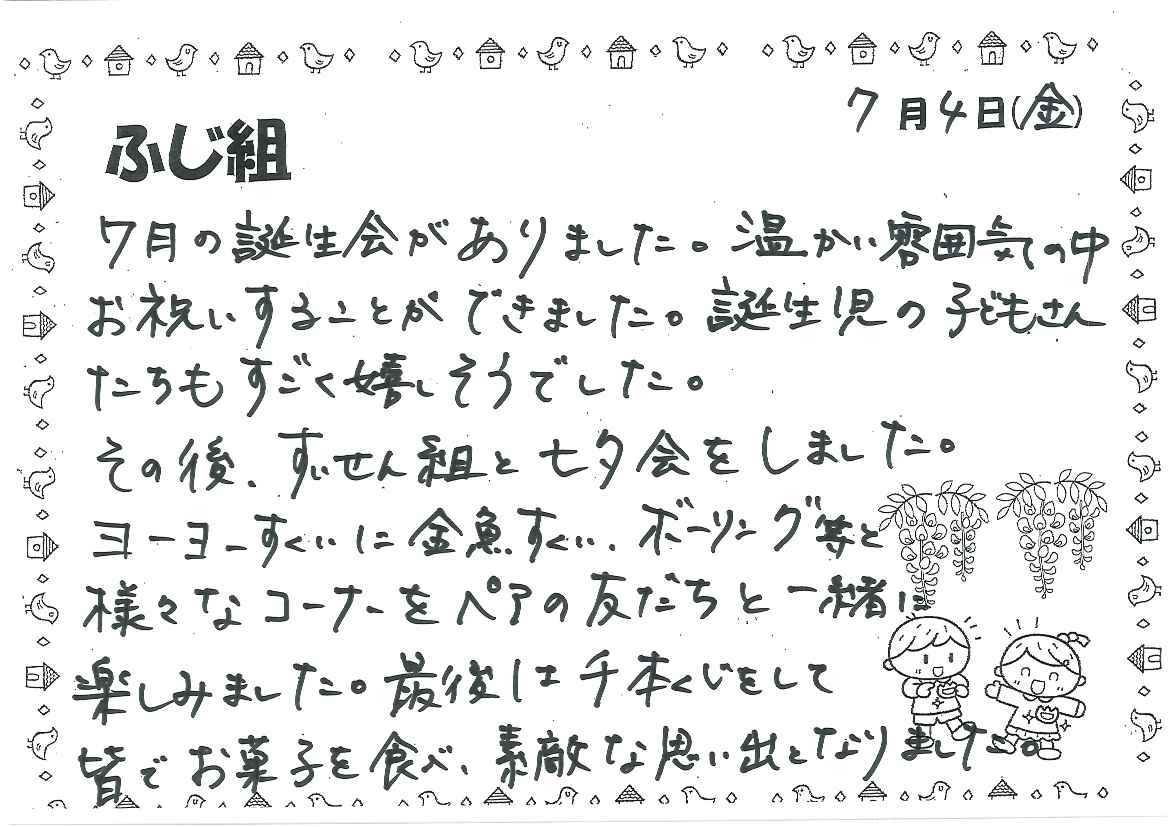 7月4日(金)
ふじ組
7月の誕生会がありました。温かい雰囲気の中
お祝いすることができました。誕生児の子どもさん
たちもすごく嬉しそうでした。
その後、すいせん組と七夕会をしました。
ヨーヨーすくいに金魚すくい、ボーリング等と
様々なコーナーをペアの友だちと一緒に
楽しみました。最後は千本くじをして
皆でお菓子を食べ、素敵な思い出となりました。